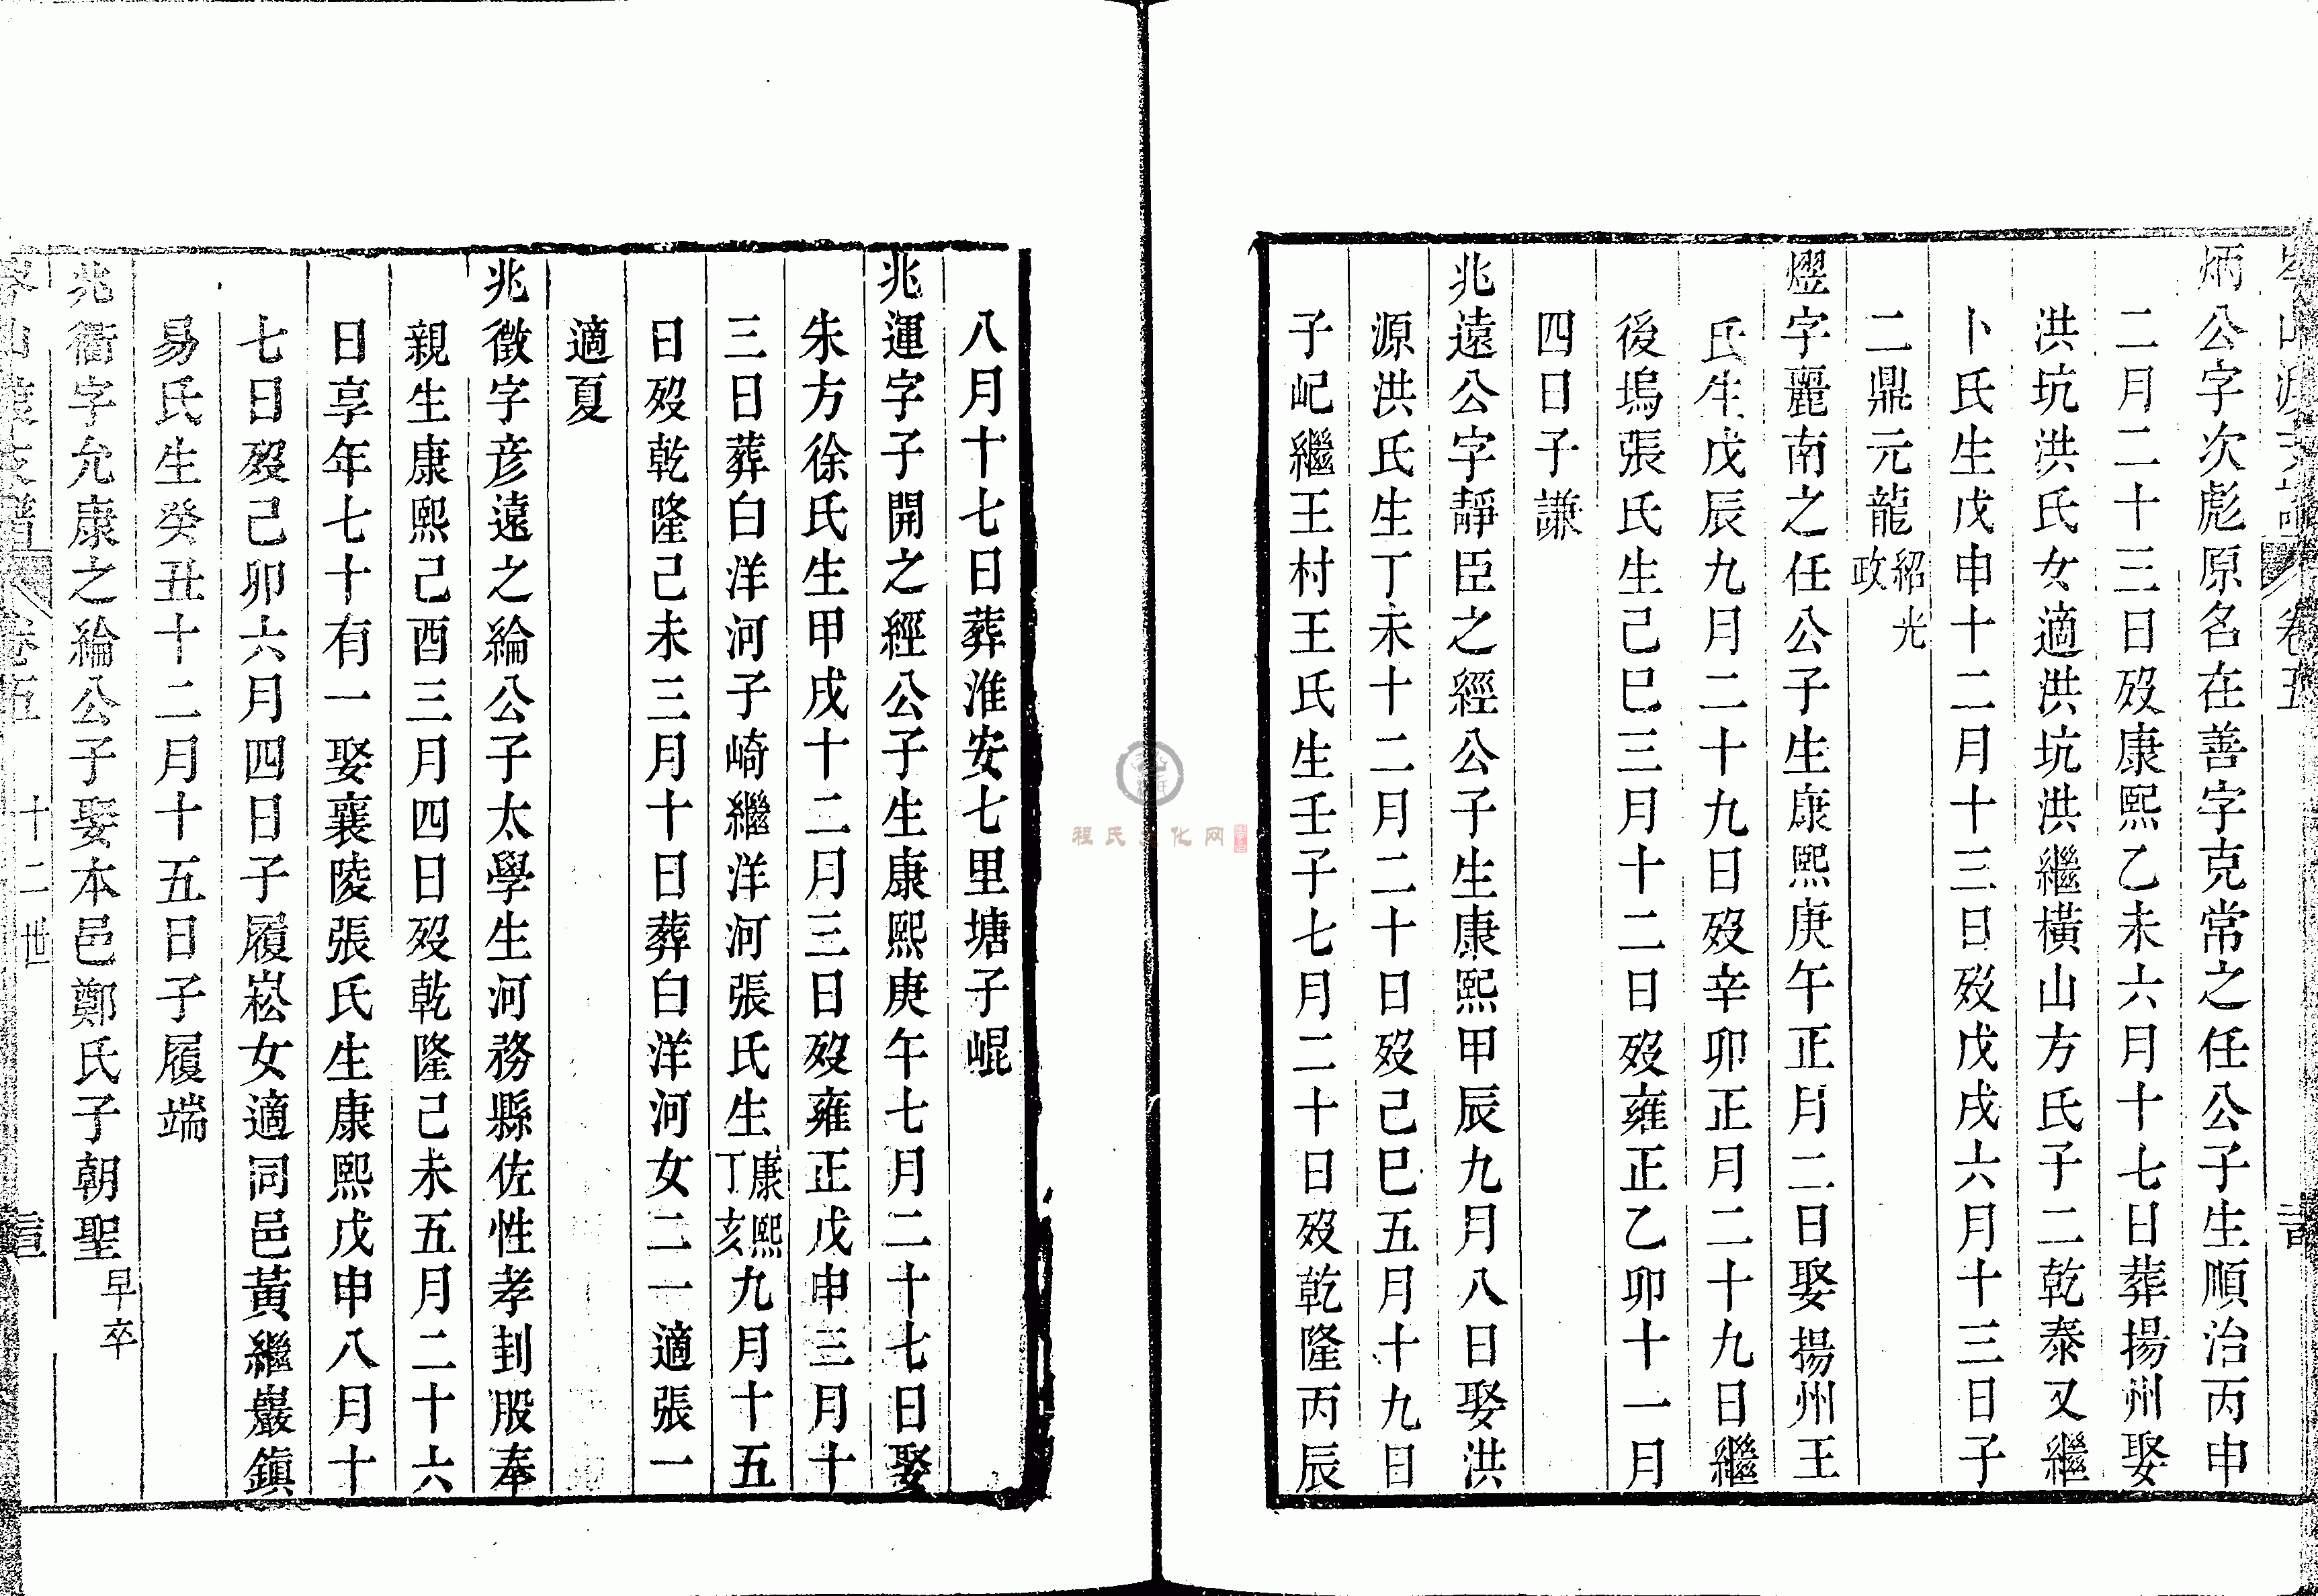 炳公字次彪原名在善字克常之任公子生順治丙申
二月二十三日歿康熙乙未六月十七日葬揚州娶
洪坑洪氏女適洪坑洪繼橫山方氏子二乾泰又繼
卜氏生戊申十二月十三日歿戊戌六月十三日子
二鼎元龍紹光政
熤字麗南之任公子生康熙庚午正月二日娶揚州王
氏生戊辰九月二十九日歿辛卯正月二十九日繼
後塢張氏生己巳三月十二日歿雍正乙卯十一月
四日子謙
兆遠公字靜臣之經公子生康熙甲辰九月八日娶洪
源洪氏生丁未十二月二十日歿己巳五月十九日
子屺繼王村王氏生壬子七月二十日歿乾隆丙辰
八月十七日葬淮安七里塘子崐
兆運字子開之經公子生康熙庚午七月二十七日娶
朱方徐氏生甲戌十二月三日歿雍正戊申三月十
三日葬白洋河子崎繼洋河張氏生康熙丁亥九月十五
日歿乾隆己未三月十日葬白洋河女二一適張一
適夏
兆徵字彦遠之綸公子太學生河務縣佐性孝刲股奉
親生康熙己酉三月四日歿乾隆己未五月二十六
日享年七十有一娶襄陵張氏生康熙戊申八月十
七日歿己卯六月四日子履崧女適同邑黃繼巖鎮
易氏生癸丑十二月十五日子履端
兆衢字允康之綸公子娶本邑鄭氏子朝聖早卒
卷五
十二世
程氏文化网